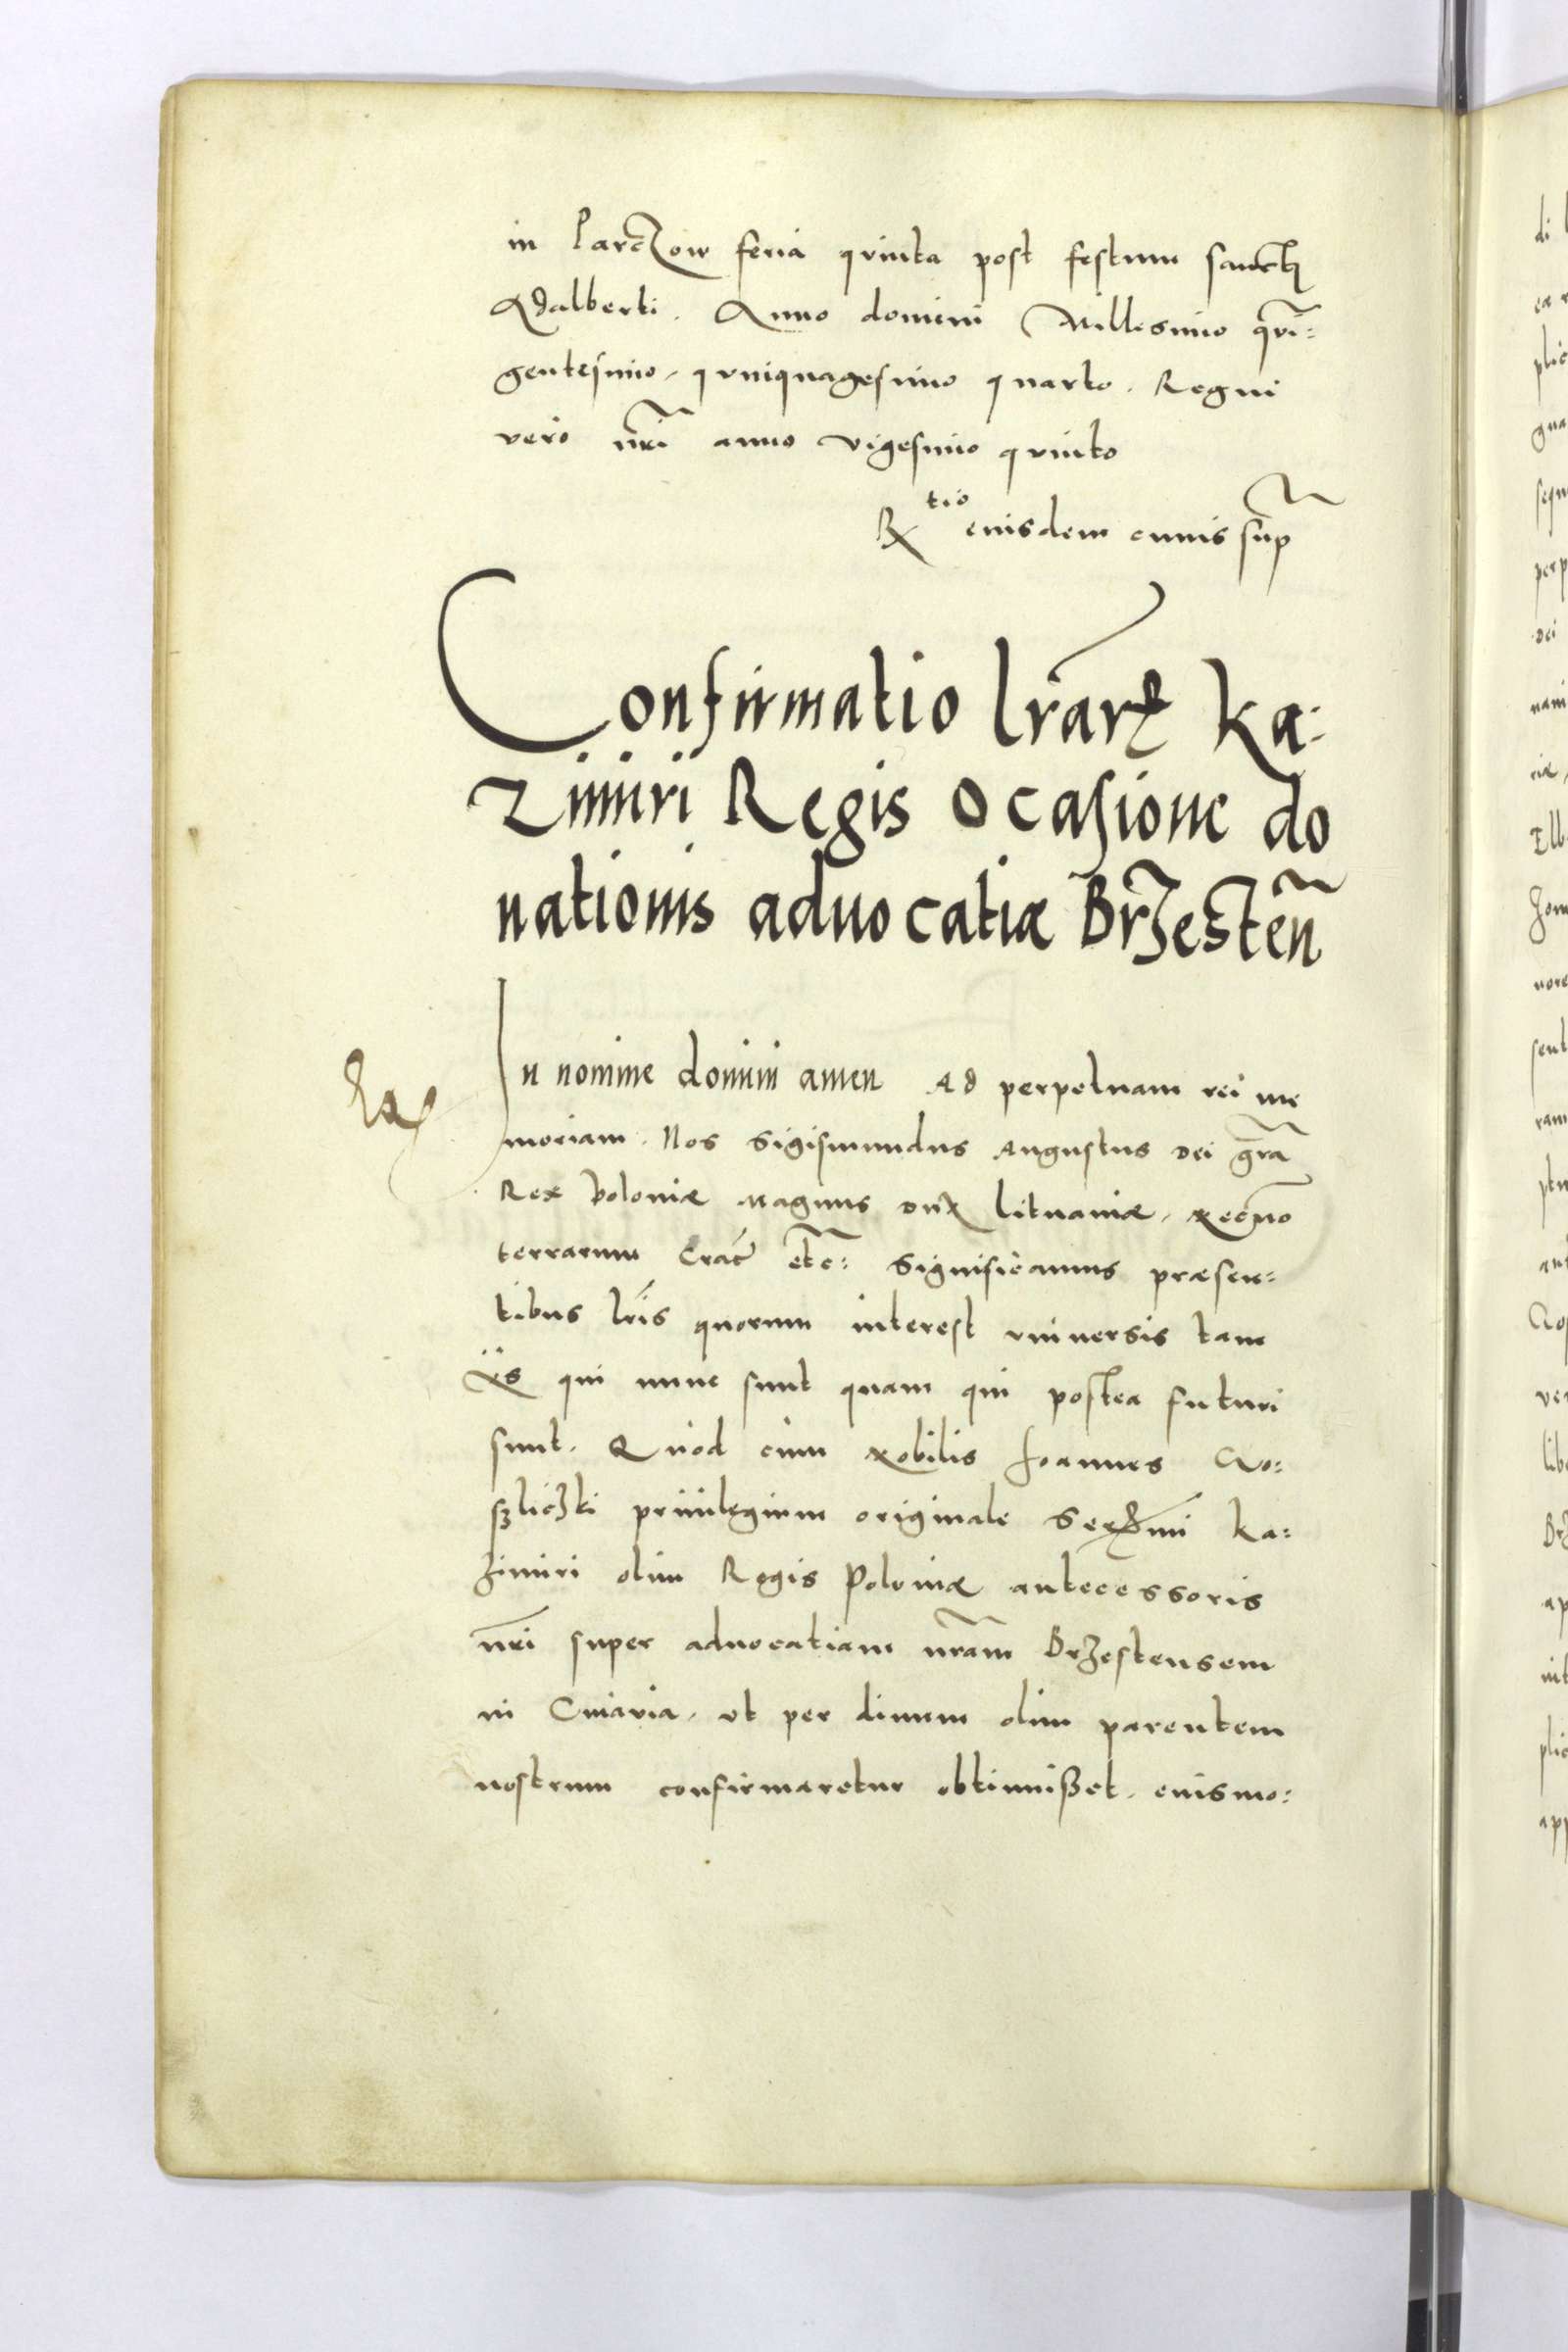 in Parczow feria quinta post festum sancti
Adalberti. Anno domini Millesimo qui=
gentesimo, quniquagesimo quarto. Regni
vero nri anno vigesimo quinto
Rtio eiusdem cuius sup
Confirmatio lrarꝝ Ka=
zimiri Regis ocasione do
nationis aduocatiæ Brzesten
In nomine domini amen Ad perpetuam rei me
moriam. Nos Sigismundus Augustus Dei gra
Rex Poloniæ Magnus Dux Lituaniæ, necno
terrarum Crac etc: Significamus præsen=
tibus lris quorum interest vniuersis tam
ÿs qui nunc sunt quam qui postea futuri
sunt. Quod cum Nobilis Joannes Co=
sliczki priuilegium originale Sermi Ka=
zimiri olim Regis Poloniæ antecessoris
nri super aduocatiam nram Brzestensem
in Cuiavia, vt per diuum olim parentem
nostrum confirmaretur obtinuißet, euismo=